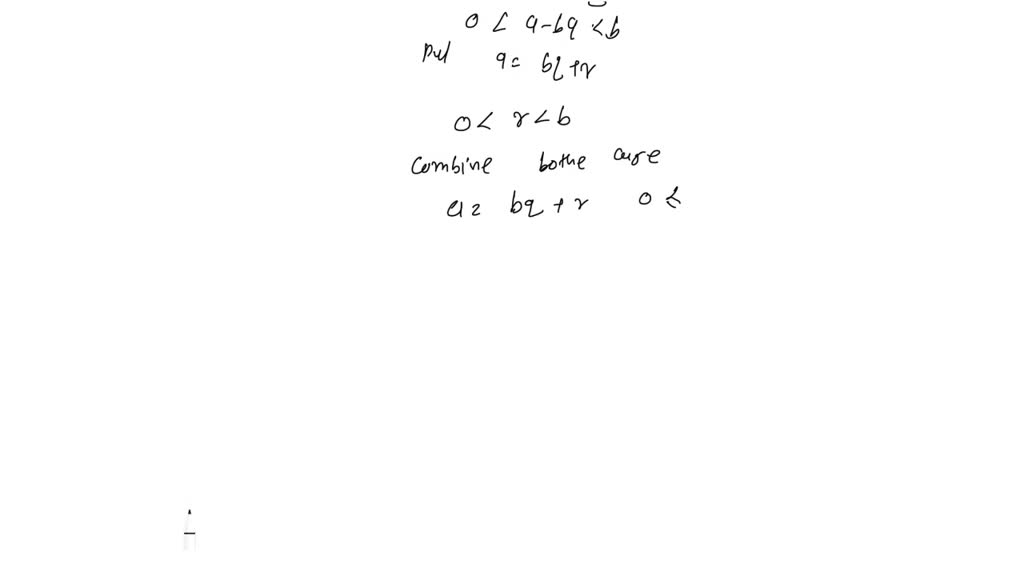 0 < a-bq < b
put a = bq + r
0 < r < b
combine bothe case
a = bq + r 0 ≤